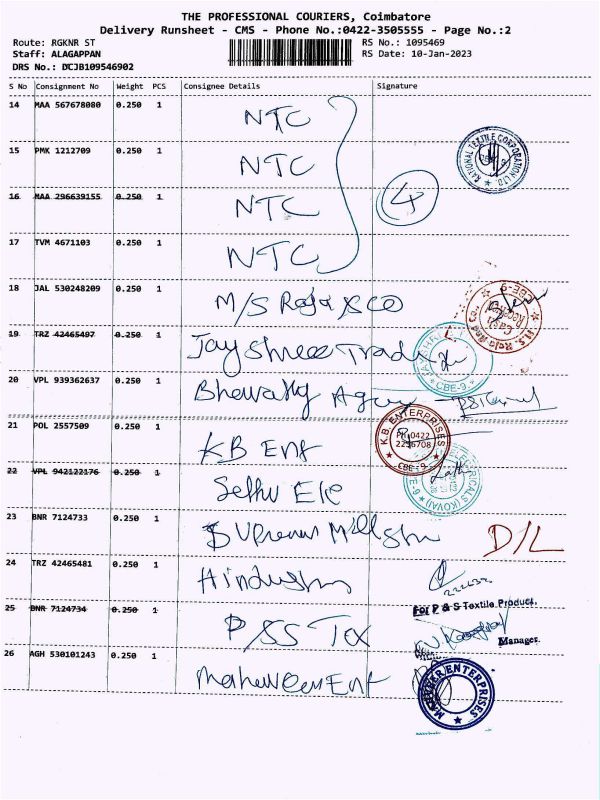 THE PROFESSIONAL COURIERS, Coimbatore
Delivery Runsheet - CMS - Phone No.:0422-3505555 - Page No.:2
Route: RGKNR ST
RS No.: 1095469
Staff: ALAGAPPAN
RS Date: 10-Jan-2023
DRS No.: DCJB109546902
S No Consignment No Weight PCS Consignee Details Signature
14 MAA 567678080 0.250 1 NTC
15 PMK 1212709 0.250 1 NTC
NATIONAL TEXTILE CORPORATION LTD.
16 MAA 296639155 0.250 1 NTC 4
17 TVM 4671103 0.250 1 NTC
18 JAL 530248209 0.250 1 M/S Raja & CO
M/S. Raja And Co.,
CBE-9
19 TRZ 42465497 0.250 1 Jay Shree Trad
CBE-9.
20 VPL 939362637 0.250 1
21 POL 2557509 0.250 1 KB Ent
K.B. ENTERPRISES
PH:0422
2236708
CBE-9
22 VPL 942122176 0.250 1 Sethu Ele
23 BNR 7124733 0.250 1 D/L
24 TRZ 42465481 0.250 1
For P & S Textile Product.
25 BNR 7124734 0.250 1 P/SS Tex
Manager.
26 AGH 530101243 0.250 1
MAHAVEER ENTERPRISES